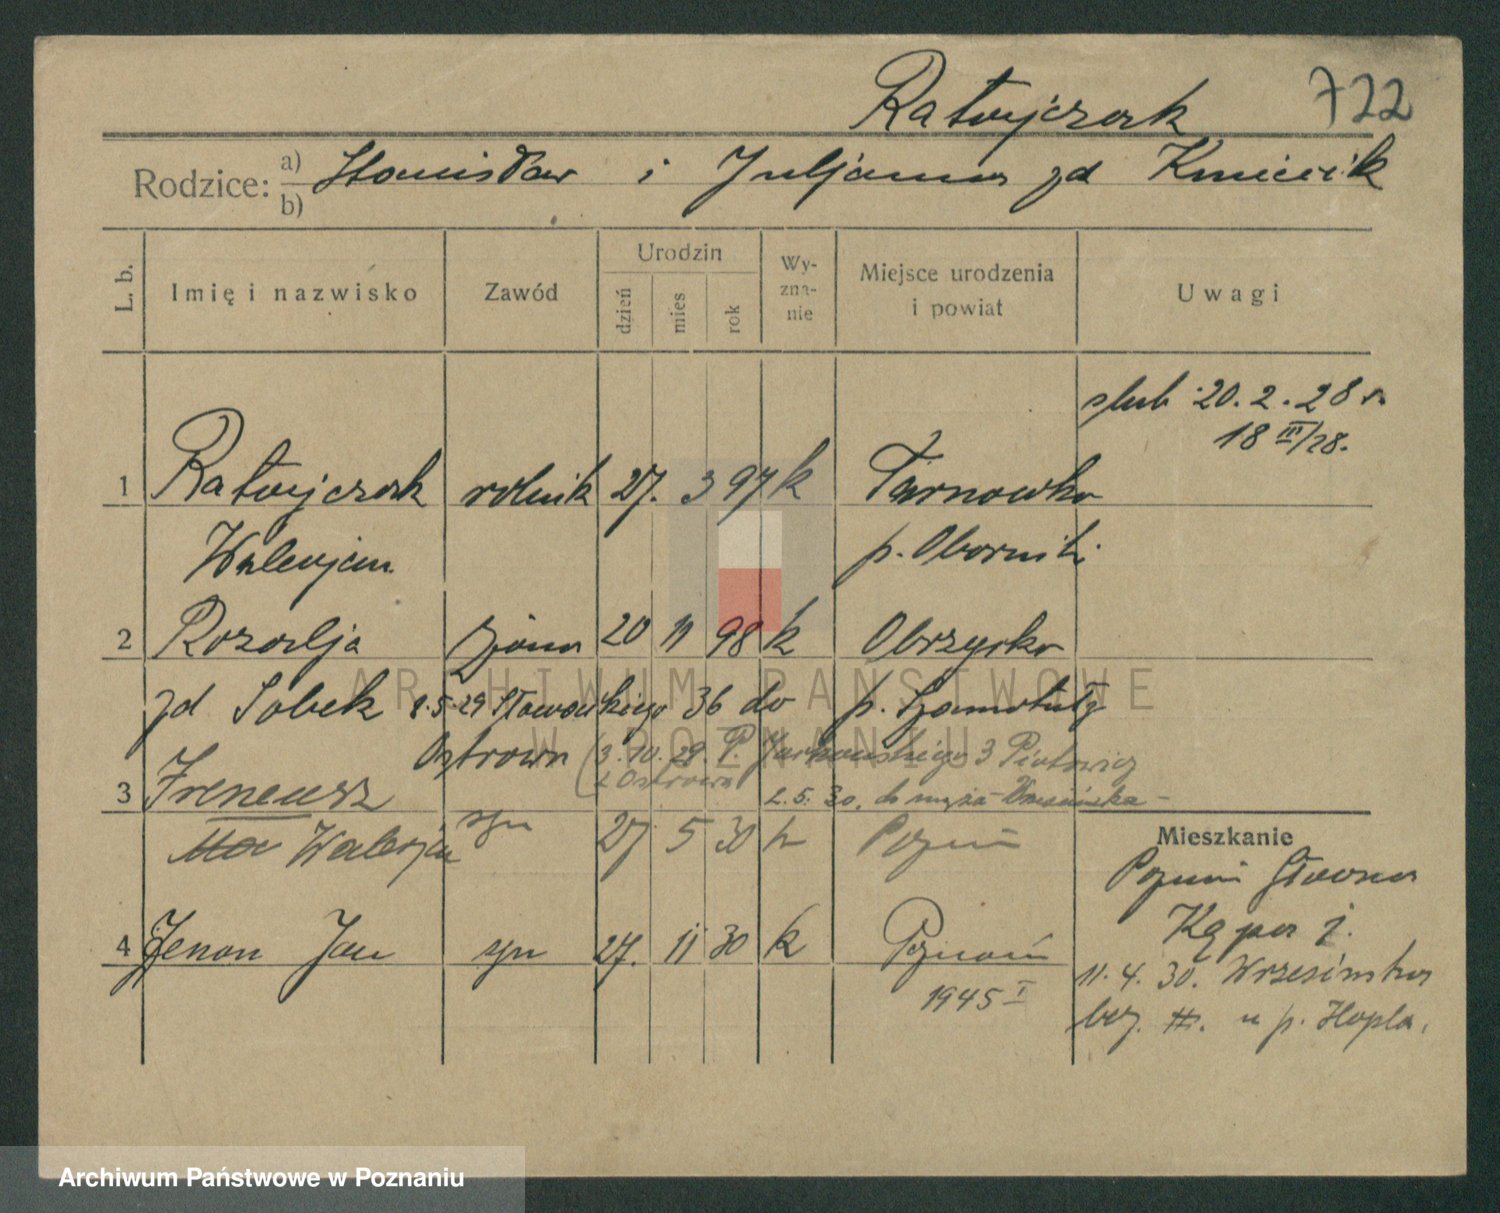 Ratajczak 722
Rodzice: a) Stanisław i Juljanna zd Kmiecik
b)
L. b. Imię i nazwisko Zawód Urodzin dzień mies rok Wyznanie Miejsce urodzenia i powiat Uwagi
ślub 20.2.28 r.
18 III/28.
1 Ratajczak rolnik 27. 3 97 k Tarnowko
Walerjan p. Oborniki
2 Rozalja żona 20 11 98 k Obrzycko
zd Sobek 8.5.29 Słowackiego 36 do p. Szamotuły
Ostrowa (3.10.29. P. 3 Piotrowicz
z Ostrowa
3 Ireneusz 2.5.30. do męża - Wrzesińska -
Walerjan syn 27 5 30 k Poznań
Mieszkanie
Poznań Główna
4 Zenon Jan syn 27. 11 30 k Poznań
1945 I
11.4.30. Wrzesińska
u p. Hopla.
ARCHIWUM PAŃSTWOWE
W POZNANIU
Archiwum Państwowe w Poznaniu